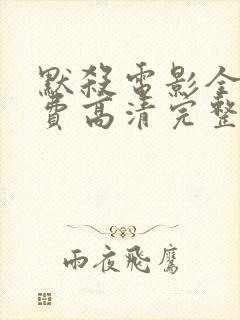 默殺電影全
費高清完整
雨夜飛鷹